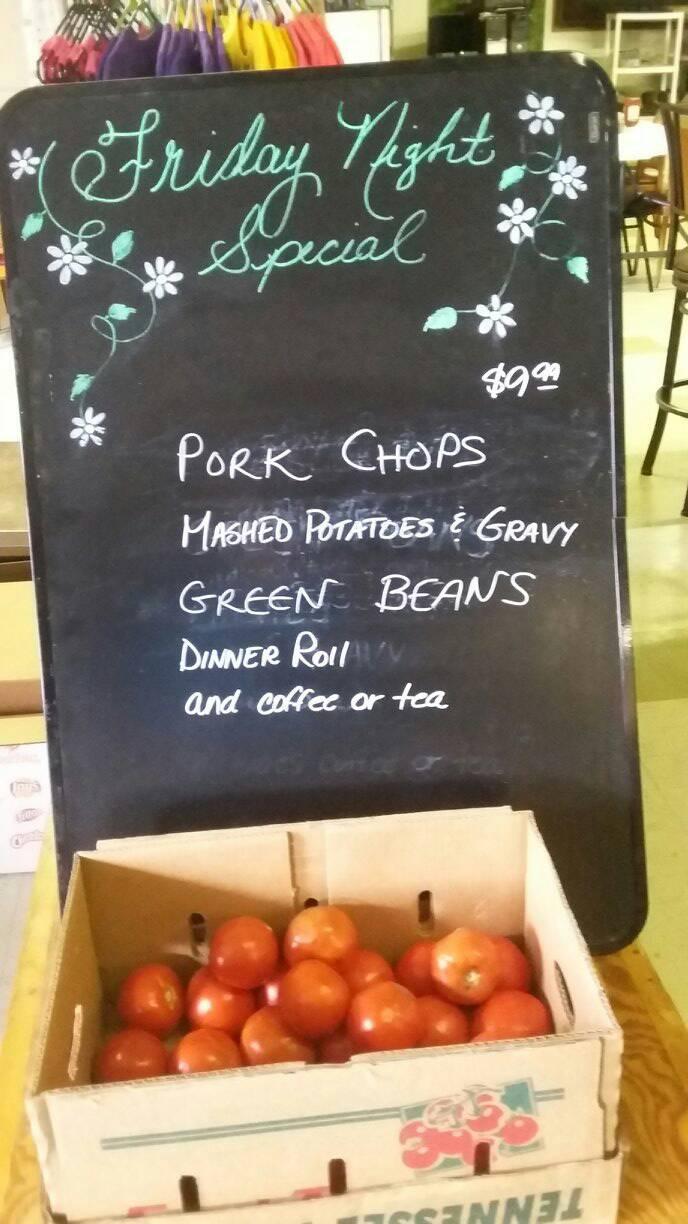 Friday Night
Special
$9.99
PORK CHOPS
MASHED POTATOES & GRAVY
GREEN BEANS
DINNER Roll
and coffee or tea
Lay's
TENNESSEE